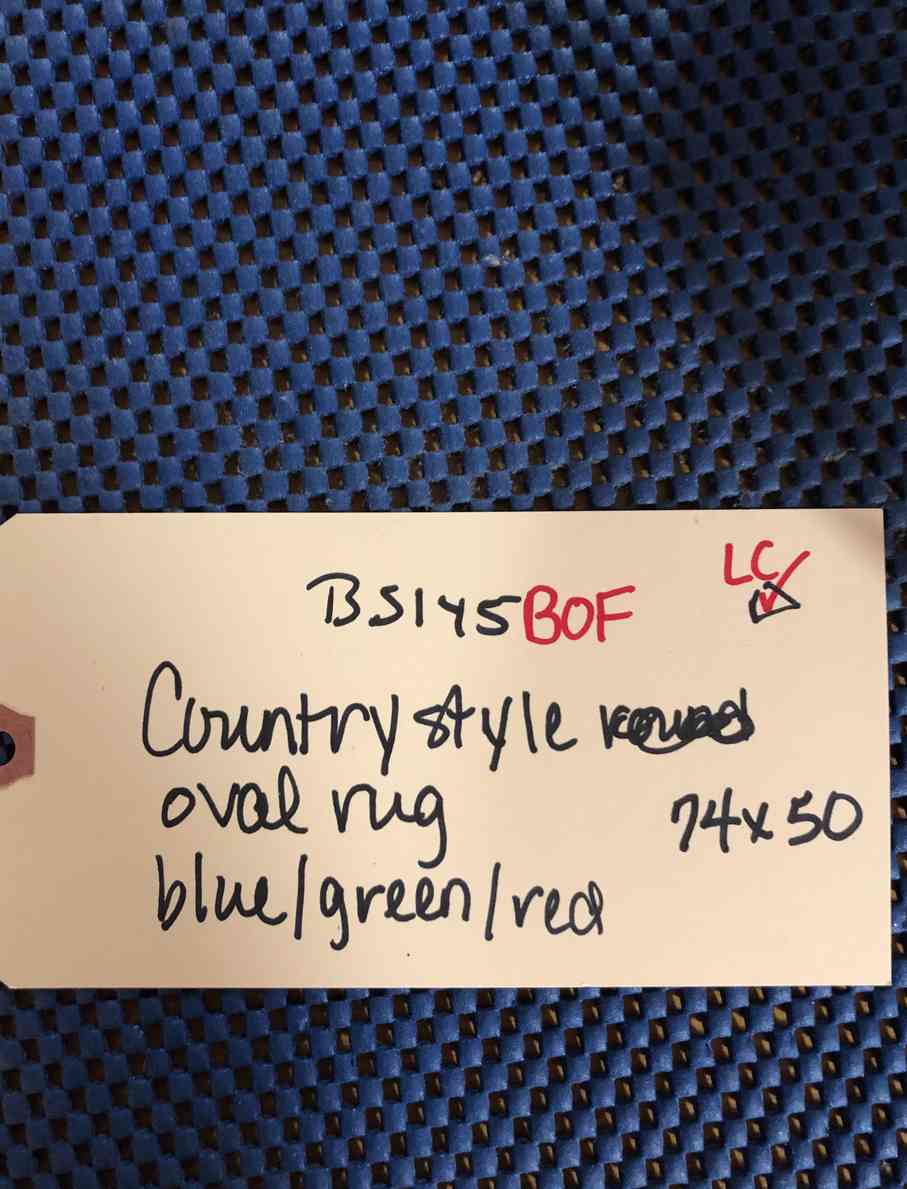 BS145BOF
LC
Country style
oval rug
74x50
blue/green/red